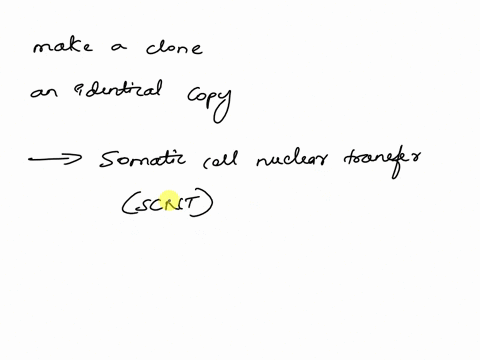 make a clone
an identical copy
→ Somatic cell nuclear transfer
(SCNT)